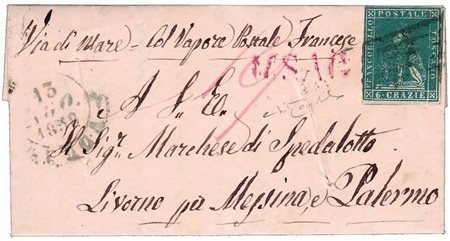 Via di Mare - Col Vapore Postale Francese
FRANCOBOLLO POSTALE TOSCANO
6·CRAZIE
13
A S. E.
Il Sig.r Marchese di Spedalotto
Livorno per Messina, e Palermo